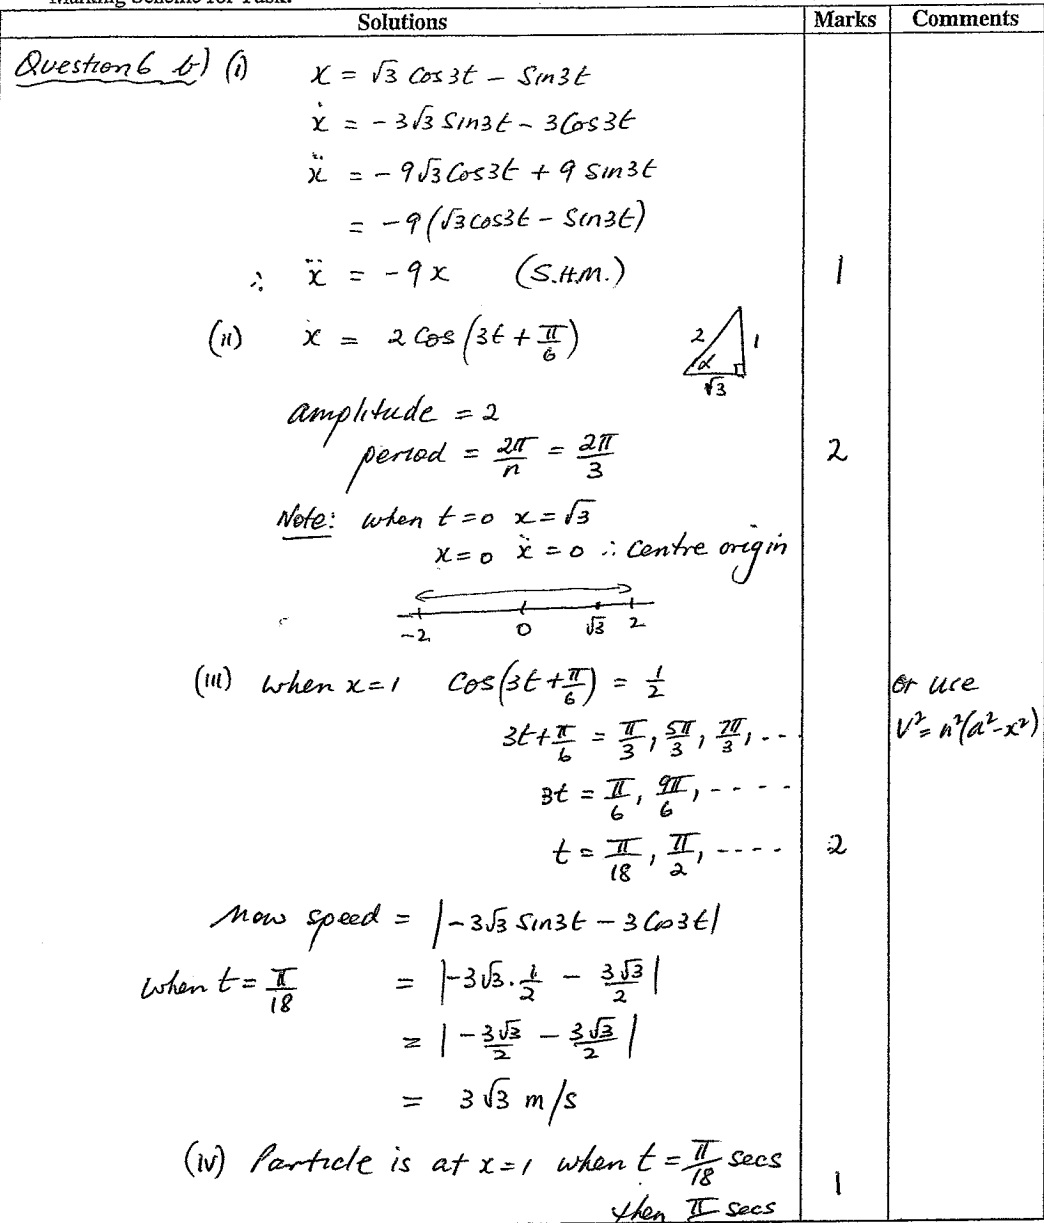 Marking Scheme for Task:
Solutions Marks Comments
Question 6 b) (i) x = √3 cos3t − Sin3t
ẋ = −3√3 Sin3t − 3Cos3t
ẍ = −9√3Cos3t + 9 sin3t
= −9(√3cos3t − Sin3t)
∴ ẍ = −9x (S.H.M.) 1
(ii) x = 2 Cos(3t + π/6) 2 1 α √3
amplitude = 2
period = 2π/n = 2π/3 2
Note: when t=0 x=√3
x=0 ẍ=0 ∴ Centre origin
-2 0 √3 2
(iii) when x=1 Cos(3t+π/6) = 1/2 or use
3t+π/6 = π/3, 5π/3, 7π/3, -- V²= n²(a²-x²)
3t = π/6, 9π/6, ----
t = π/18, π/2, ---- 2
Now speed = |−3√3 Sin3t − 3Cos3t|
when t=π/18 = |−3√3.1/2 − 3√3/2|
= |−3√3/2 − 3√3/2|
= 3√3 m/s
(iv) Particle is at x=1 when t=π/18 secs 1
then π secs